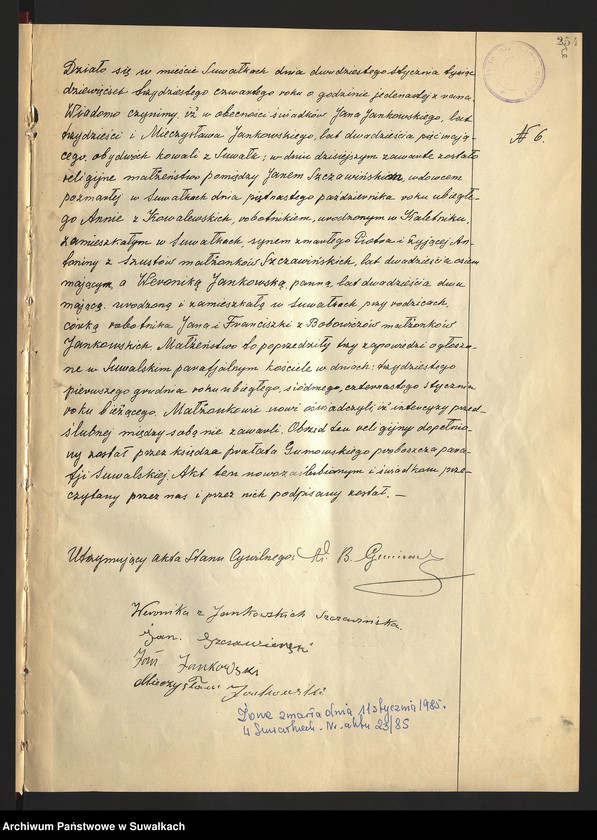 254
6
№ 6.
Działo się w mieście Suwałkach dnia dwudziestego stycznia tysiąc
dziewięćset trzydziestego czwartego roku o godzinie jedenastej z rana.
Wiadomo czynimy, iż w obecności świadków Jana Jankowskiego, lat
trzydzieści i Mieczysława Jankowskiego, lat dwadzieścia pięć mają-
cego, obydwóch kowali z Suwałk; w dniu dzisiejszym zawarte zostało
religijne małżeństwo pomiędzy Janem Szczawińskim, wdowcem
po zmarłej w Suwałkach dnia piętnastego października roku ubiegłe-
go Annie z Kowalewskich, robotnikiem, urodzonym w Kaletniku,
zamieszkałym w Suwałkach, synem zmarłego Piotra i żyjącej An-
toniny z Szustów małżonków Szczawińskich, lat dwadzieścia osiem
mającym, a Weroniką Jankowską, panną, lat dwadzieścia dwa
mającą, urodzoną i zamieszkałą w Suwałkach przy rodzicach,
córką robotnika Jana i Franciszki z Bobowiczów małżonków
Jankowskich. Małżeństwo to poprzedziły trzy zapowiedzi ogłoszo-
ne w Suwalskim parafjalnym kościele w dniach: trzydziestego
pierwszego grudnia roku ubiegłego, siódmego, czternastego stycznia
roku bieżącego. Małżonkowie nowi oświadczyli, iż intercyzy przed-
ślubnej między sobą nie zawarli. Obrzęd ten religijny dopełnio-
ny został przez księdza prałata Gumowskiego proboszcza para-
fji Suwalskiej. Akt ten nowozaślubionym i świadkom prze-
czytany przez nas i przez nich podpisany został. —
Utrzymujący akta Stanu Cywilnego: Ks. B. Gumowski
Weronika z Jankowskich Szczawińska.
Jan. Szczawiński
Jan Jankowski
Mieczysław Jankowski
Żona zmarła dnia 11 stycznia 1985.
w Suwałkach. Nr. aktu 23/85
Archiwum Państwowe w Suwałkach